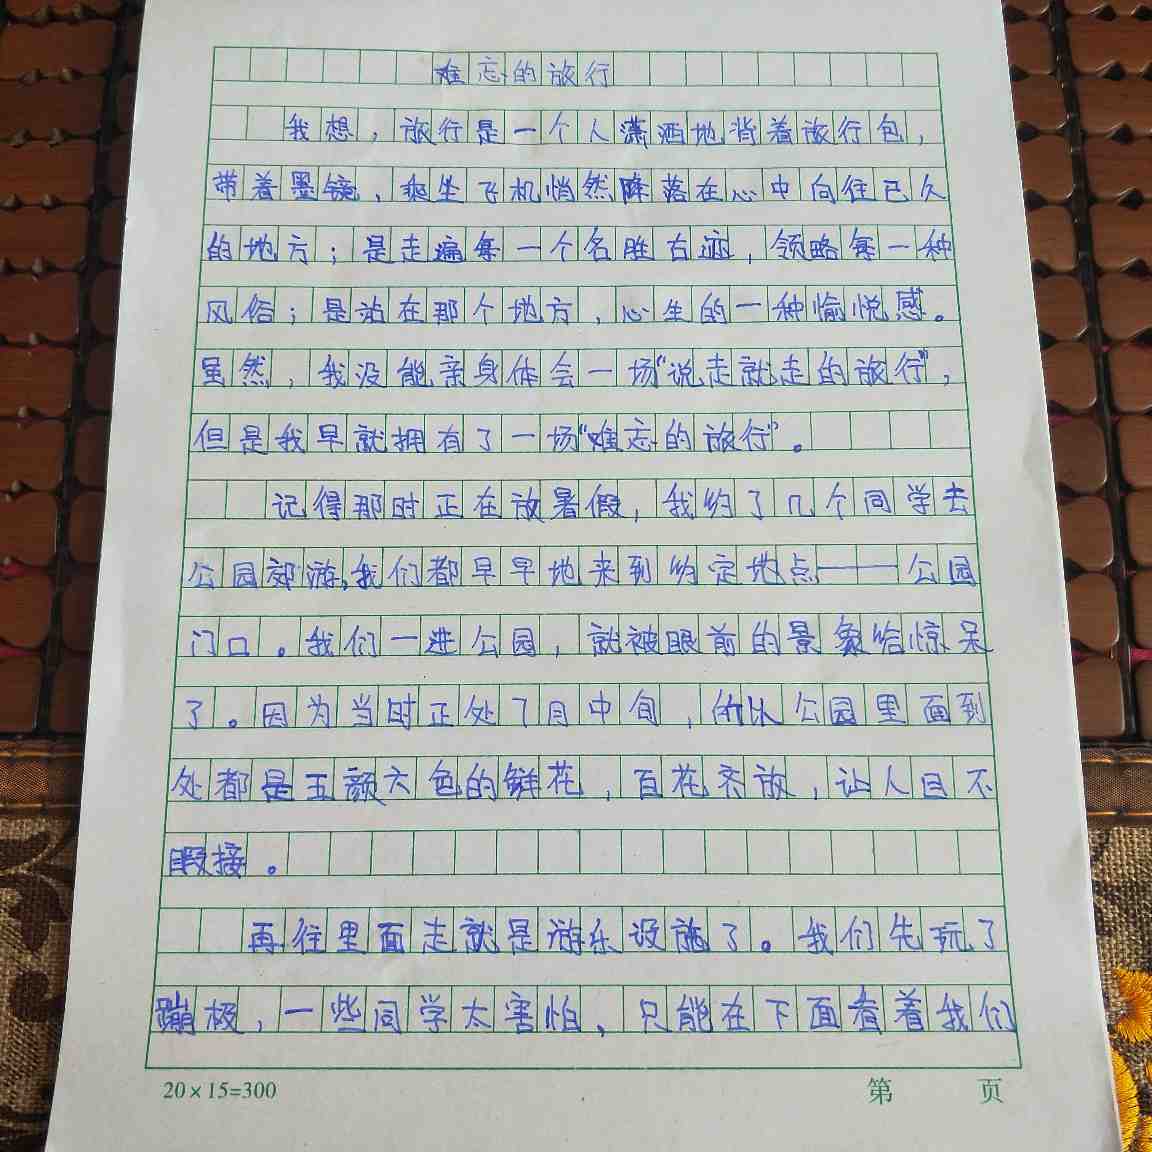 难忘的旅行
我想，旅行是一个人潇洒地背着旅行包，
带着墨镜，乘坐飞机悄然降落在心中向往已久
的地方；是走遍每一个名胜古迹，领略每一种
风俗；是站在那个地方，心生的一种愉悦感。
虽然，我没能亲身体会一场“说走就走的旅行”，
但是我早就拥有了一场“难忘的旅行”。
记得那时正在放暑假，我约了几个同学去
公园郊游，我们都早早地来到约定地点——公园
门口。我们一进公园，就被眼前的景象给惊呆
了。因为当时正处7月中旬，所以公园里面到
处都是五颜六色的鲜花，百花齐放，让人目不
暇接。
再往里面走就是游乐设施了。我们先玩了
蹦极，一些同学太害怕，只能在下面看着我们
20×15=300
第 页